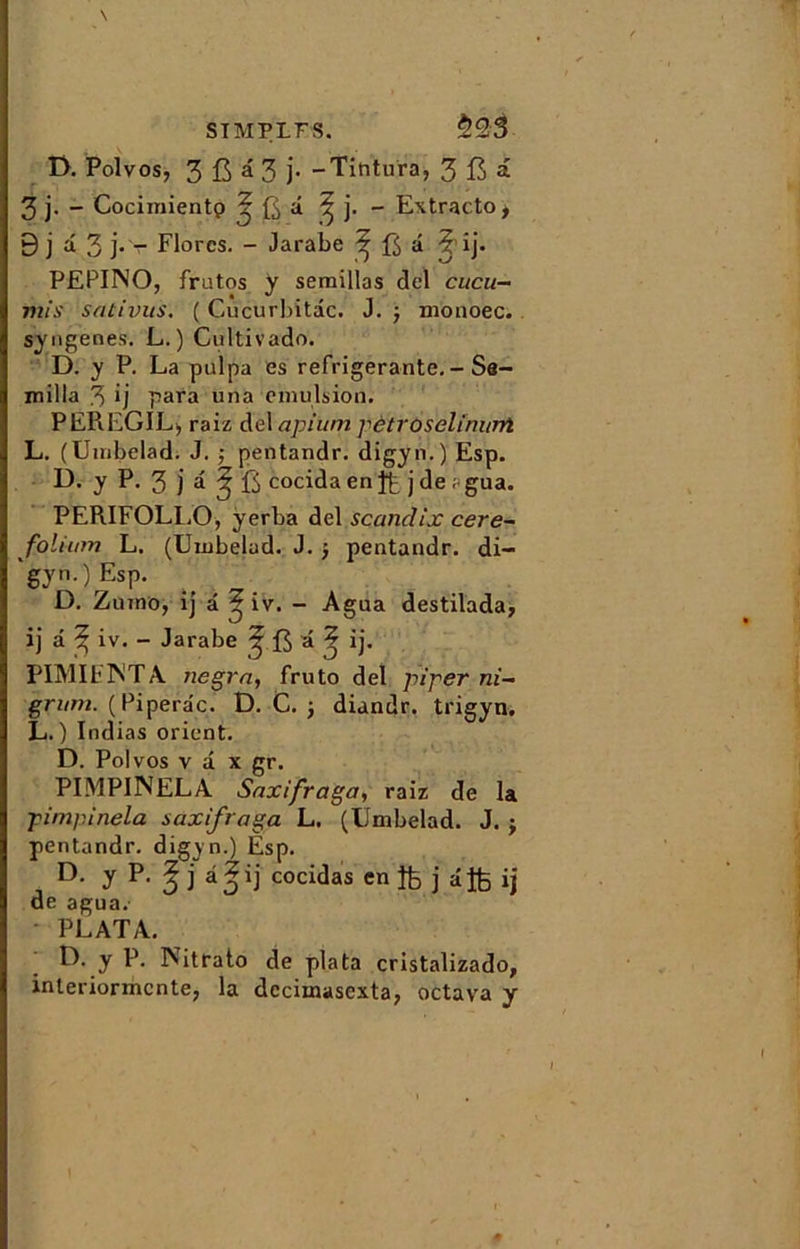 SIMPLES. 223
D. Polvos, ʒ ß á ʒ j. -Tintura, ʒ ß á
ʒ j. - Cocimiento ℥ ß á ℥ j. - Extracto,
℈ j á ʒ j. - Flores. - Jarabe ℥ ß á ℥ ij.
PEPINO, frutos y semillas del cucu-
mis sativus. (Cucurbitác. J. ; monoec.
syngenes. L.) Cultivado.
D. y P. La pulpa es refrigerante. - Se-
milla ʒ ij para una emulsion.
PEREGIL, raiz del apium petroselinum
L. (Umbelad. J. ; pentandr. digyn.) Esp.
D. y P. ʒ j á ℥ ß cocida en ℔ j de agua.
PERIFOLLO, yerba del scandix cere-
folium L. (Umbelad. J. ; pentandr. di-
gyn.) Esp.
D. Zumo, ij á ℥ iv. - Agua destilada,
ij á ℥ iv. - Jarabe ℥ ß á ℥ ij.
PIMIENTA negra, fruto del piper ni-
grum. (Piperác. D. C. ; diandr. trigyn.
L.) Indias orient.
D. Polvos v á x gr.
PIMPINELA Saxifraga, raiz de la
pimpinela saxifraga L. (Umbelad. J. ;
pentandr. digyn.) Esp.
D. y P. ℥ j á ℥ ij cocidas en ℔ j á ℔ ij
de agua.
PLATA.
D. y P. Nitrato de plata cristalizado,
interiormente, la decimasexta, octava y